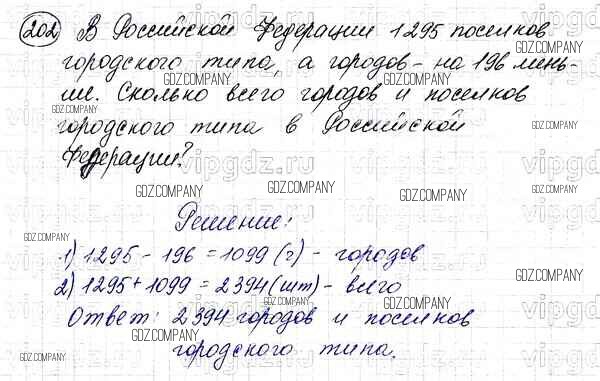 202 В Российской Федерации 1295 поселков
городского типа, а городов - на 196 мень-
ше. Сколько всего городов и поселков
городского типа в Российской
Федерации?
Решение:
1) 1295 - 196 = 1099 (г) - городов
2) 1295 + 1099 = 2394 (шт) - всего
Ответ: 2394 городов и поселков
городского типа.
GDZ.COMPANY
vipgdz.ru